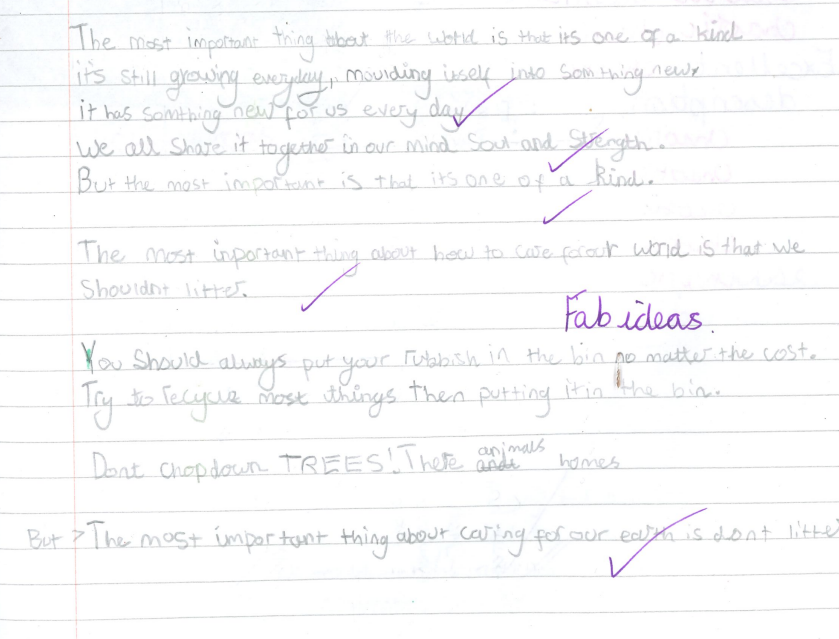 The most important thing about the world is that its one of a kind
it's still growing everyday, moulding itself into somthing new,
it has somthing new for us every day
We all share it together in our mind Soul and Strength.
But the most important is that its one of a kind.
The most inportant thing about how to care for our world is that we
Shouldnt litter.
Fab ideas.
You Should always put your rubbish in the bin no matter the cost.
Try to recycle most things then putting it in the bin.
Dont chop down TREES! There animals homes
But > The most important thing about caring for our earth is dont litte